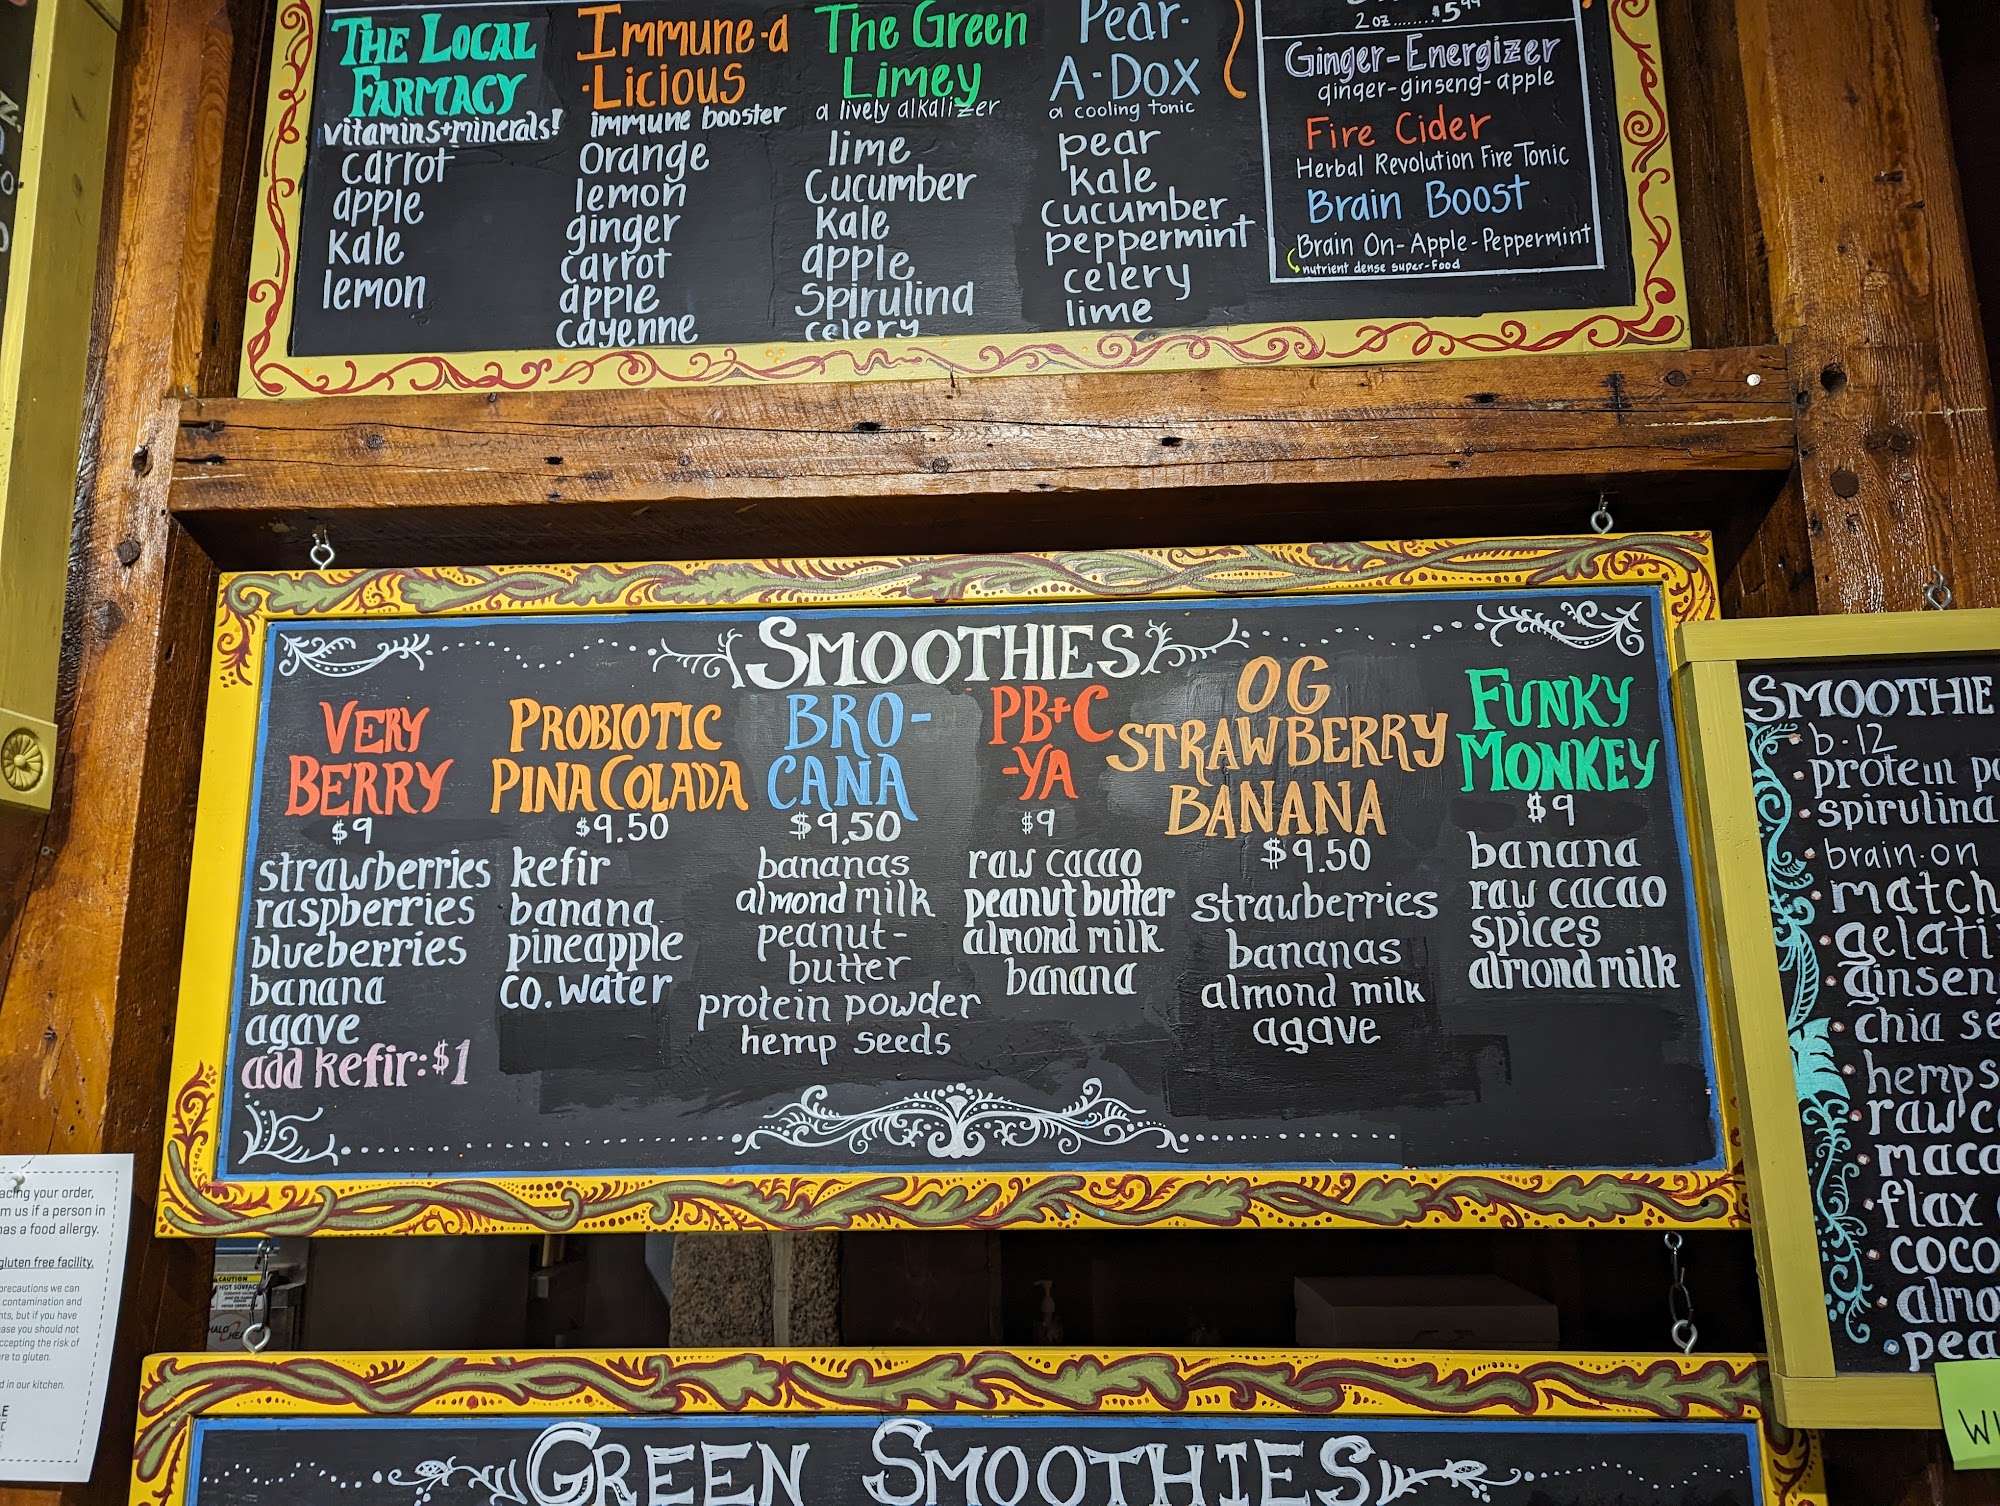 THE LOCAL
FARMACY
vitamins+minerals!
carrot
apple
kale
lemon
Immune-a
-Licious
immune booster
Orange
lemon
ginger
carrot
apple
cayenne
The Green
Limey
a lively alkalizer
lime
cucumber
kale
apple
spirulina
celery
Pear-
A-Dox
a cooling tonic
pear
kale
cucumber
peppermint
celery
lime
2 oz........$5.99
Ginger-Energizer
ginger-ginseng-apple
Fire Cider
Herbal Revolution Fire Tonic
Brain Boost
Brain On-Apple-Peppermint
nutrient dense super-food
SMOOTHIES
VERY
BERRY
$9
strawberries
raspberries
blueberries
banana
agave
add kefir:$1
PROBIOTIC
PINA COLADA
$9.50
kefir
banana
pineapple
co. water
BRO-
CANA
$9.50
bananas
almond milk
peanut-
butter
protein powder
hemp seeds
PB+C
-YA
$9
raw cacao
peanut butter
almond milk
banana
OG
STRAWBERRY
BANANA
$9.50
strawberries
bananas
almond milk
agave
FUNKY
MONKEY
$9
banana
raw cacao
spices
almond milk
SMOOTHIE
b-12
protein
spirulina
brain-on
chia
raw
flax
acing your order,
m us if a person in
has a food allergy.
gluten free facility.
precautions we can
contamination and
nts, but if you have
ase you should not
ccepting the risk of
re to gluten.
d in our kitchen.
CAUTION
HOT SURFACE
GREEN SMOOTHIES